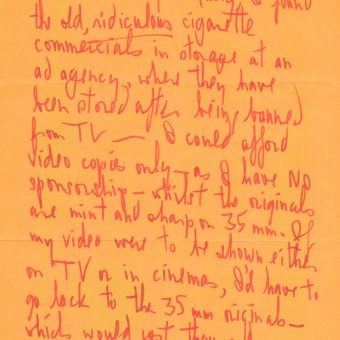 I found
the old, ridiculous cigarette
commercials in storage at an
ad agency, where they have
been stored after being banned
from TV — I could afford
video copies only — as I have NO
sponsorship — whilst the originals
are mint and sharp, on 35 mm. If
my video were to be shown either
on TV or in cinemas, I'd have to
go back to the 35 mm originals —
which would cost